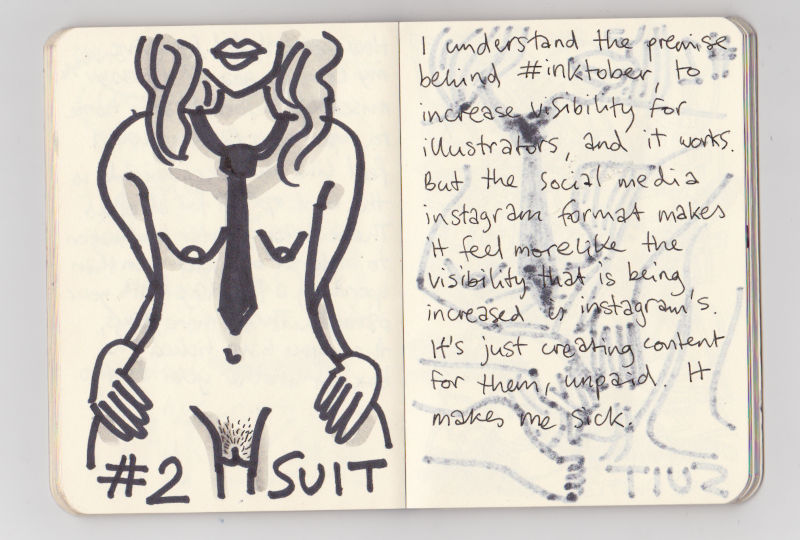 #2 SUIT
I understand the premise
behind #inktober, to
increase visibility for
illustrators, and it works.
But the social media
instagram format makes
it feel more like the
visibility that is being
increased is instagram's.
It's just creating content
for them, unpaid. It
makes me sick.